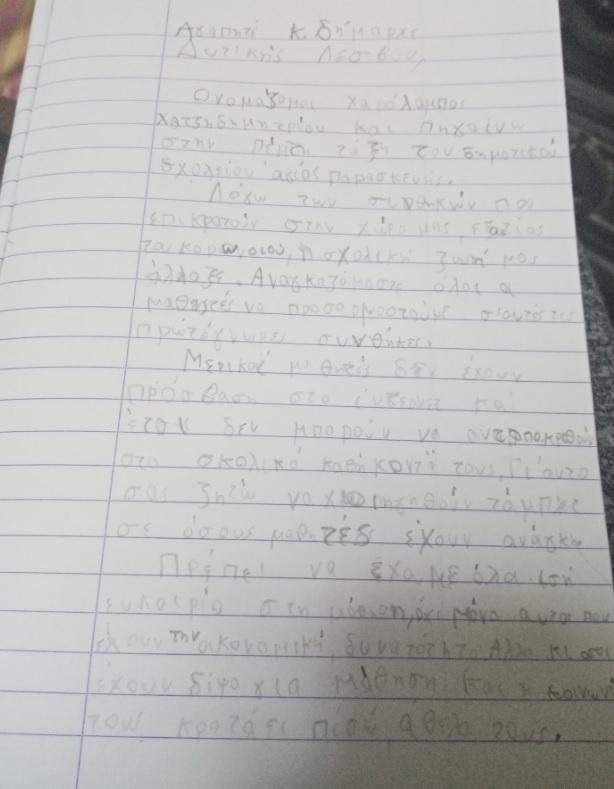 Αγαπητέ κ. δήμαρχε
Δυτικής Λέσβου,
Ονομάζομαι χαράλαμπος
χατζηδημητρίου και πηχαίνω
στην πέμπτη τάξη του δημοτικού
σχολείου αγίας παρασκευής.
Λόχω των συνθηκών που
επικρατούν στην χώρα μας, εξαιτίας
του κορωνοιού, η σχολική ζωή μας
άλλαξε. Αναγκαζόμαστε όλοι οι
μαθητές να προσαρμοστούμε σ'αυτές τις
πρωτόγνωρες συνθήκες.
Μερικοί μαθητές δεν έχουν
πρόσβαση στο ίντερνετ και
έτσι δεν μπορούν να ανταποκριθούν
στα σκολικά καθήκοντά τους, Γι'αυτο
σας ζητώ να χορηγηθούν τάμπλετ
σε όσους μαθητές έχουν ανάγκη
Πρέπει να έχουμε όλοι ίση
ευκαιρία στη μάθηση, όχι μόνο αυτοί που
έχουν την οικονομική δυνατότητα Αλλά κι οσοι
έχουν δίψα για μάθηση και η
τους κρατάει πίσω άθελα τους.